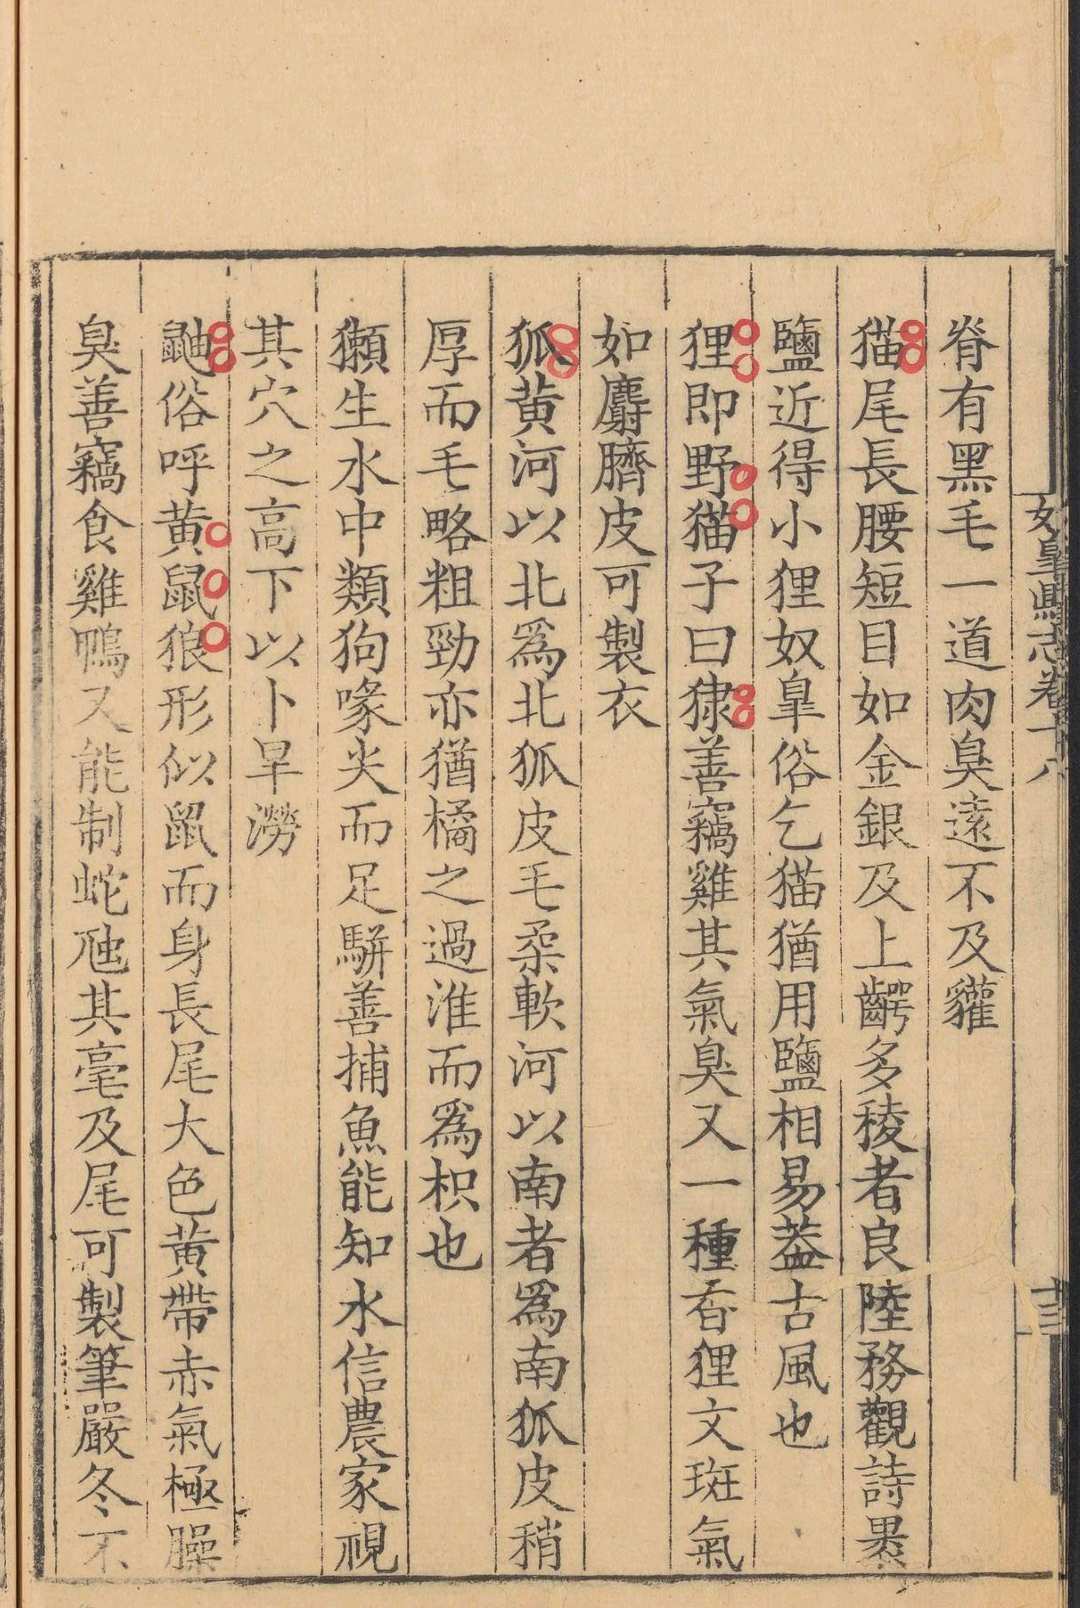 脊有黑毛一道肉臭遠不及貛
猫尾長腰短目如金銀及上齶多稜者良陸務觀詩裹
鹽近得小狸奴臯俗乞猫猶用鹽相易葢古風也
狸即野猫子曰㹑善竊雞其氣臭又一種香狸文斑氣
如麝臍皮可製衣
狐黄河以北爲北狐皮毛柔軟河以南者爲南狐皮稍
厚而毛略粗勁亦猶橘之過淮而爲枳也
獺生水中類狗喙尖而足駢善捕魚能知水信農家視
其穴之高下以卜旱澇
鼬俗呼黄鼠狼形似鼠而身長尾大色黄帶赤氣極臊
臭善竊食雞鴨又能制蛇虺其毫及尾可製筆嚴冬不